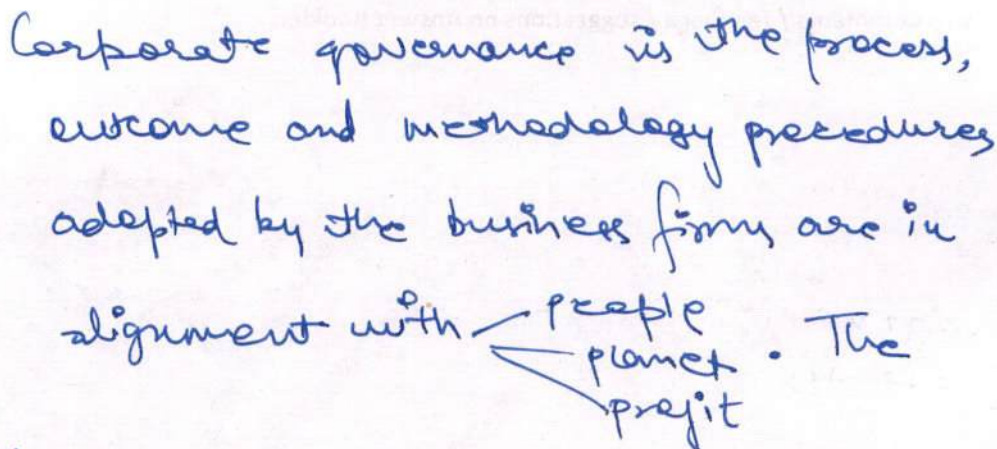 Corporate governance is the process,
outcome and methodology procedures
adopted by the business firms are in
alignment with people
planet . The
profit